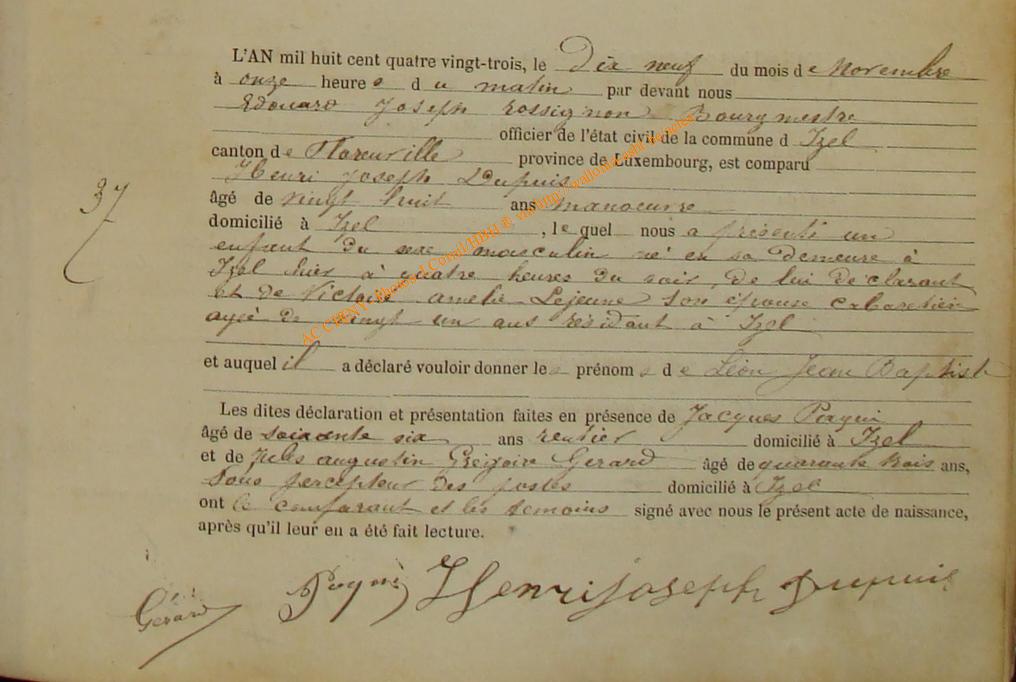 L'AN mil huit cent quatre vingt-trois, le Dix neuf du mois de Novembre
à onze heures du matin par devant nous
Edouard Joseph rossignon Bourgmestre
officier de l'état civil de la commune d Izel
canton de Florenville province de Luxembourg, est comparu
Henri Joseph Dupuis
âgé de vingt huit ans manoeuvre
domicilié à Izel , lequel nous a présenté un
enfant du sexe masculin né en sa demeure à
Izel hier à quatre heures du soir, de lui déclarant
et de Victoire amelie Lejeune son épouse cabaretière
agée de vingt un ans résidant à Izel
37
et auquel il a déclaré vouloir donner les prénoms de Léon Jean Baptiste
Les dites déclaration et présentation faites en présence de Jacques
âgé de soixante six ans rentier domicilié à Izel
et de Jules augustin Grégoire Gerard âgé de quarante trois ans,
Sous percepteur des postes domicilié à Izel
ont le comparant et les temoins signé avec nous le présent acte de naissance,
après qu'il leur en a été fait lecture.
Gérard Henri joseph Dupuis